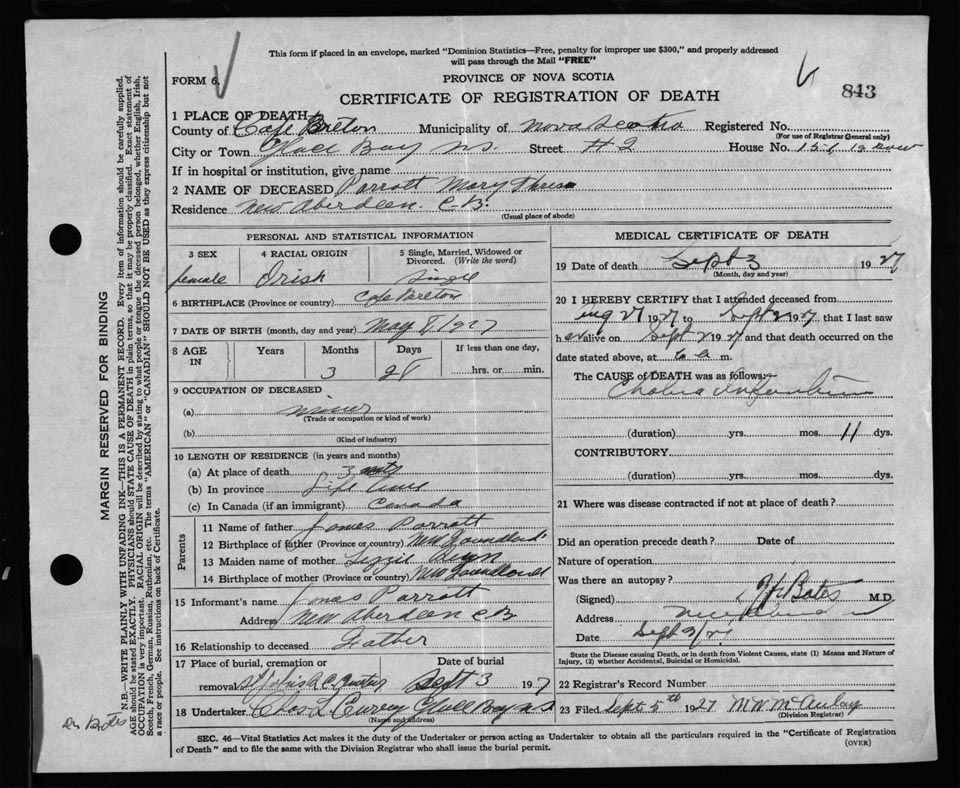 This form if placed in an envelope, marked "Dominion Statistics—Free, penalty for improper use $300," and properly addressed
will pass through the Mail "FREE"
FORM 6.
PROVINCE OF NOVA SCOTIA
843
CERTIFICATE OF REGISTRATION OF DEATH
1 PLACE OF DEATH
County of Cape Breton Municipality of Nova Scotia Registered No.
(For use of Registrar General only)
City or Town Glace Bay N.S. Street #2 House No.
If in hospital or institution, give name
2 NAME OF DECEASED Parrott Mary
Residence New Aberdeen C.B.
(Usual place of abode)
PERSONAL AND STATISTICAL INFORMATION
3 SEX 4 RACIAL ORIGIN 5 Single, Married, Widowed or Divorced. (Write the word)
female Irish Single
6 BIRTHPLACE (Province or country) Cape Breton
7 DATE OF BIRTH (month, day and year) May 1927
8 AGE IN Years Months Days If less than one day,
3 hrs. or min.
9 OCCUPATION OF DECEASED
(a)
(Trade or occupation or kind of work)
(b)
(Kind of industry)
10 LENGTH OF RESIDENCE (in years and months)
(a) At place of death 3
(b) In province Life time
(c) In Canada (if an immigrant) Canada
Parents
11 Name of father James Parrott
12 Birthplace of father (Province or country) Newfoundland
13 Maiden name of mother Lizzie
14 Birthplace of mother (Province or country) Newfoundland
15 Informant's name James Parrott
Address New Aberdeen C B
16 Relationship to deceased Father
17 Place of burial, cremation or Date of burial
removal Sept 3 1927
18 Undertaker Chas L Curry Glace Bay N.S
(Name and address)
MEDICAL CERTIFICATE OF DEATH
19 Date of death Sept 3 1927
(Month, day and year)
20 I HEREBY CERTIFY that I attended deceased from
Aug 27 1927 to Sept 2 1927 that I last saw
her alive on Sept 2 1927 and that death occurred on the
date stated above, at 6 a m.
The CAUSE of DEATH was as follows:
Cholera Infantum
(duration) yrs. mos. 11 dys.
CONTRIBUTORY
(duration) yrs. mos. dys.
21 Where was disease contracted if not at place of death?
Did an operation precede death? Date of
Nature of operation
Was there an autopsy?
(Signed) Bates M.D.
Address New Aberdeen
Date Sept
State the Disease causing Death, or in death from Violent Causes, state (1) Means and Nature of
Injury, (2) whether Accidental, Suicidal or Homicidal.
22 Registrar's Record Number
23 Filed Sept 5th 1927 M McAulay
(Division Registrar)
SEC. 46—Vital Statistics Act makes it the duty of the Undertaker or person acting as Undertaker to obtain all the particulars required in the "Certificate of Registration
of Death" and to file the same with the Division Registrar who shall issue the burial permit.
(OVER)
MARGIN RESERVED FOR BINDING
N.B.—WRITE PLAINLY WITH UNFADING INK—THIS IS A PERMANENT RECORD. Every item of information should be carefully supplied.
AGE should be stated EXACTLY. PHYSICIANS should STATE CAUSE OF DEATH in plain terms, so that it may be properly classified. Exact statement of
OCCUPATION is very important. RACIAL ORIGIN will be described by stating to what people or tongue the deceased person belonged, whether English, Irish,
Scotch, French, German, Russian, Ruthenian, etc. The terms "AMERICAN" or "CANADIAN" SHOULD NOT BE USED as they express citizenship but not
a race or people. See instructions on back of Certificate.
Dr Bates